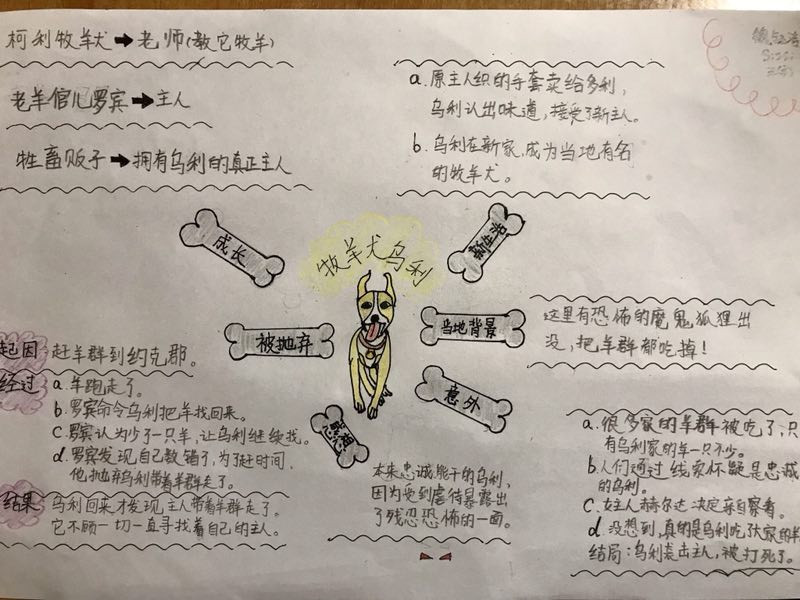 柯利牧羊犬➡老师(教它牧羊)
老羊倌儿罗宾➡主人
牲畜贩子➡拥有乌利的真正主人
a.原主人织的手套卖给多利,
乌利认出味道,接受了新主人。
b.乌利在新家,成为当地有名
的牧羊犬。
成长
牧羊犬乌利
被抛弃
当地背景
意外
感想
这里有恐怖的魔鬼狐狸出
没,把羊群都吃掉!
起因 赶羊群到约克郡。
经过 a.羊跑走了。
b.罗宾命令乌利把羊找回来。
c.罗宾认为少了一只羊,让乌利继续找。
d.罗宾发现自己数错了,为了赶时间,
他抛弃乌利带着羊群走了。
结果 乌利回来才发现,主人带着羊群走了。
它不顾一切一直寻找着自己的主人。
本来忠诚,能干的乌利,
因为受到虐待暴露出
了残忍恐怖的一面。
a.很多家的羊群被吃了,只
有乌利家的羊一只不少。
b.人们通过线索怀疑是忠诚
的乌利。
c.女主人赫尔达决定亲自察看。
d.没想到,真的是乌利吃了大家的羊
结局:乌利袭击主人,被打死了。